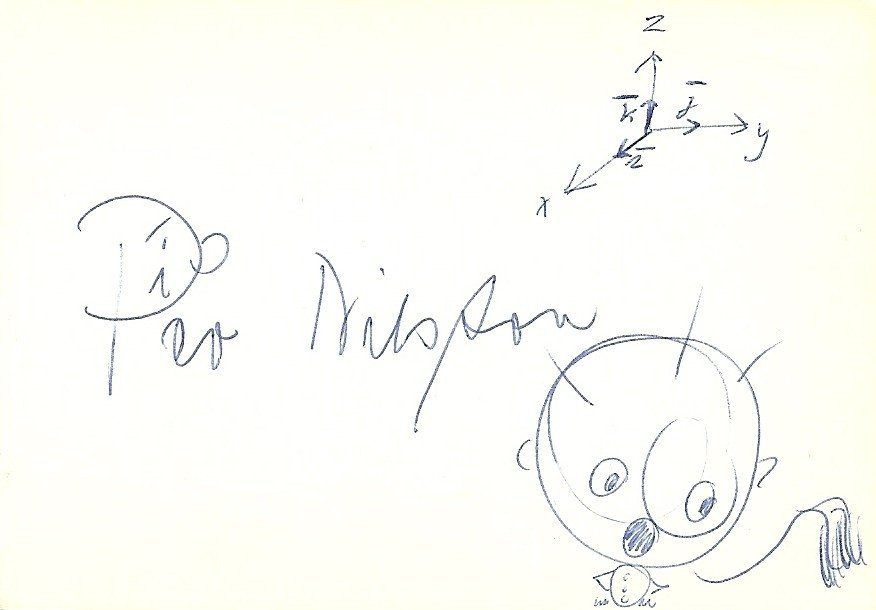 z
k̄ j̄
y
x
Per Nilsson